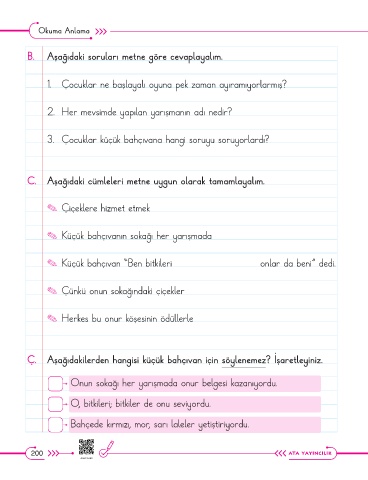 Okuma Anlama
B. Aşağıdaki soruları metne göre cevaplayalım.
1. Çocuklar ne başlayalı oyuna pek zaman ayıramıyorlarmış?
2. Her mevsimde yapılan yarışmanın adı nedir?
3. Çocuklar küçük bahçıvana hangi soruyu soruyorlardı?
C. Aşağıdaki cümleleri metne uygun olarak tamamlayalım.
Çiçeklere hizmet etmek
Küçük bahçıvanın sokağı her yarışmada
Küçük bahçıvan “Ben bitkileri onlar da beni” dedi.
Çünkü onun sokağındaki çiçekler
Herkes bu onur köşesinin ödüllerle
Ç. Aşağıdakilerden hangisi küçük bahçıvan için söylenemez? İşaretleyiniz.
Onun sokağı her yarışmada onur belgesi kazanıyordu.
O, bitkileri; bitkiler de onu seviyordu.
Bahçede kırmızı, mor, sarı laleler yetiştiriyordu.
200
ATA YAYINCILIK